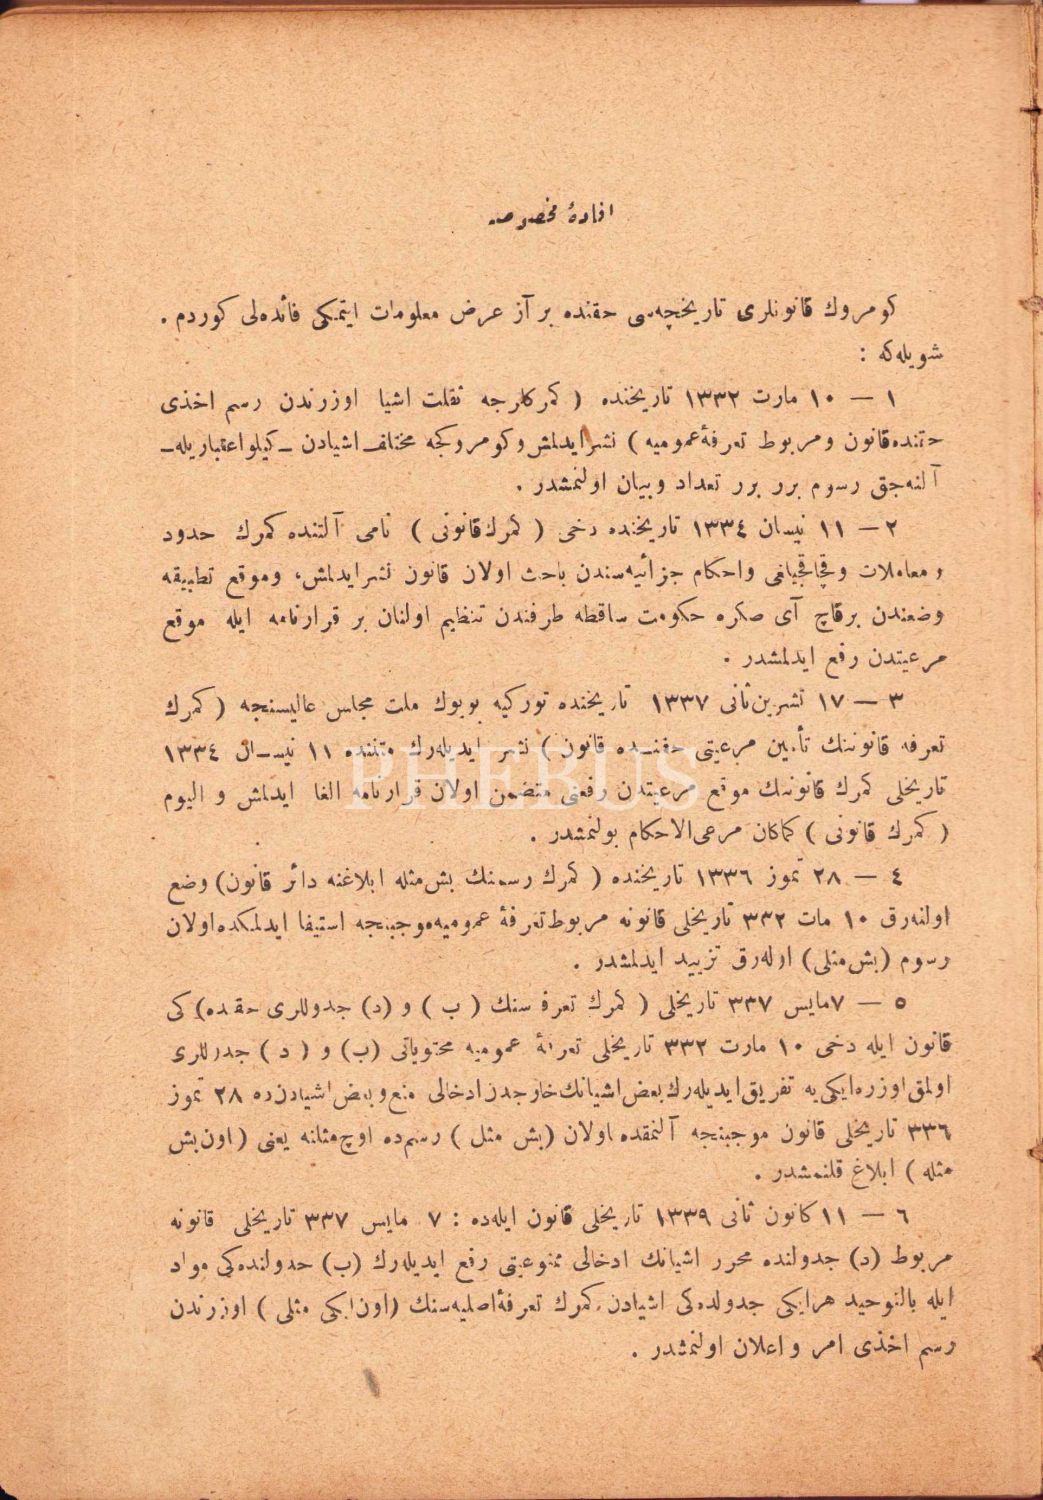 افادۀ مخصوصه
كومروك قانونلرى تاريخچه‌سى حقنده بر آز عرض معلومات ايتمكى فائده‌لى كوردم .
شويله‌كه :
١ — ١٠ مارت ١٣٣٢ تاريخنده ( كمركلرجه ثقلت اشيا اوزرندن رسم اخذى
حقنده قانون ومربوط تعرفۀ عموميه ) نشر ايدلمش وكومروكجه مختلف اشيادن ـ كيلو اعتباريله ـ
آلنه‌جق رسوم برر برر تعداد وبيان اولنمشدر .
٢ — ١١ نيسان ١٣٣٤ تاريخنده دخى ( كمرك قانونى ) نامى آلتنده كمرك حدود
و معاملات وقچاقچيلغى واحكام جزائيه‌سندن باحث اولان قانون نشر ايدلمش، وموقع تطبيقه
وضعندن برقاچ آى صكره حكومت ساقطه طرفندن تنظيم اولنان بر قرارنامه ايله موقع
مرعيتدن رفع ايدلمشدر .
٣ — ١٧ تشرين ثانى ١٣٣٧ تاريخنده توركيه بويوك ملت مجلس عاليسنجه ( كمرك
تعرفه قانوننك تأمين مرعيتى حقنـده قانون ) نشر ايديله‌رك متننده ١١ نيسـان ١٣٣٤
تاريخلى كمرك قانوننك موقع مرعيتدن رفعنى متضمن اولان قرارنامه الغا ايدلمش و اليوم
( كمرك قانونى ) كماكان مرعى‌الاحكام بولنمشدر .
٤ — ٢٨ تموز ١٣٣٦ تاريخنده ( كمرك رسمنك بش مثله ابلاغنه دائر قانون) وضع
اولنه‌رق ١٠ مات ٣٣٢ تاريخلى قانونه مربوط تعرفۀ عموميه موجبنجه استيفا ايدلمكده اولان
رسوم (بش مثلى) اوله‌رق تزييد ايدلمشدر .
٥ — ٧ مايس ٣٣٧ تاريخلى ( كمرك تعرفه سنك ( ب ) و (د) جدوللرى حقده) كى
قانون ايله دخى ١٠ مارت ٣٣٢ تاريخلى تعرفۀ عموميه محتوياتى (ب) و ( د ) جدوللرى
اولمق اوزره ايكى‌يه تفريق ايديله‌رك بعض اشيانك خارجدن ادخالى منع وبعض اشيادن ده ٢٨ تموز
٣٣٦ تاريخلى قانون موجبنجه آلنمقده اولان (بش مثل ) رسم‌ده اوچ مثلنه يعنى ( اون بش
مثله ) ابلاغ قلنمشدر .
٦ — ١١ كانون ثانى ١٣٣٩ تاريخلى قانون ايله‌ده : ٧ مايس ٣٣٧ تاريخلى قانونه
مربوط (د) جدولنده محرر اشيانك ادخالى ممنوعيتى رفع ايديله‌رك (ب) جدولنده‌كى مواد
ايله بالتوحيد هرايكى جدولده‌كى اشيادن كمرك تعرفۀ اصليه‌سنك (اون ايكى مثلى ) اوزرندن
رسم اخذى امر و اعلان اولنمشدر .
PHEBUS